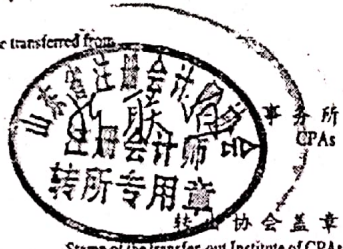 e transferred from
山东省注册会计师协会
事务所
CPAs
注册会计师
转所专用章
转出协会盖章
Stamp of the transfer-out Institute of CPAs